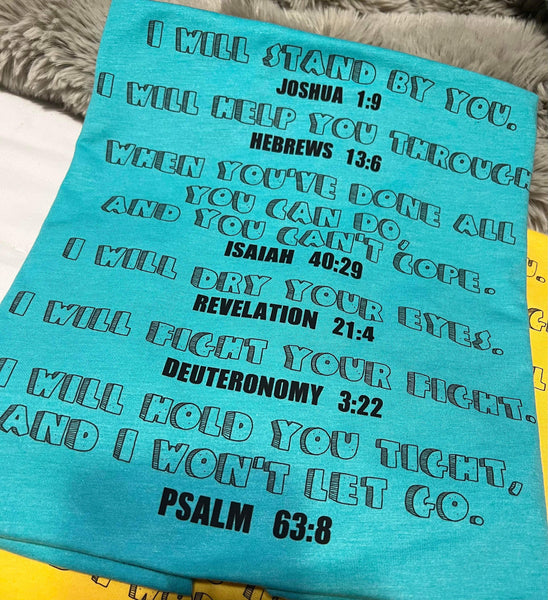 I WILL STAND BY YOU.
JOSHUA 1:9
I WILL HELP YOU THROUGH
HEBREWS 13:6
WHEN YOU'VE DONE ALL
YOU CAN DO,
AND YOU CAN'T COPE.
ISAIAH 40:29
I WILL DRY YOUR EYES.
REVELATION 21:4
I WILL FIGHT YOUR FIGHT.
DEUTERONOMY 3:22
I WILL HOLD YOU TIGHT,
AND I WON'T LET GO.
PSALM 63:8